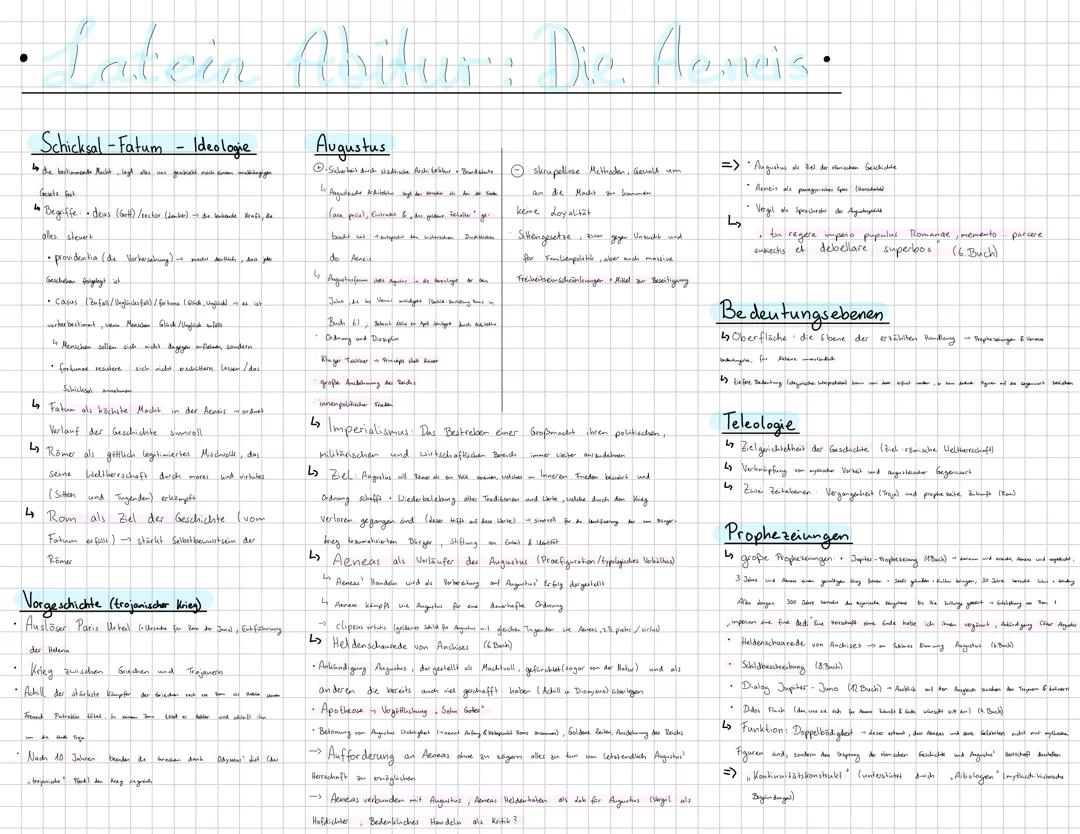 • Latein Abitur: Die Aeneis •
Schicksal - Fatum - Ideologie
↳ die bestimmende Macht, legt alles was geschieht nach einem unabhängigen
Gesetz fest
↳ Begriffe: • deus (Gott) / rector (Lenker) → die lenkende Kraft, die
alles steuert
• providentia (die Vorhersehung) → macht deutlich, dass jedes
Geschehen festgelegt ist
• casus (Zufall/Unglücksfall) / fortuna (Glück, Unglück) → es ist
vorherbestimmt, wenn Menschen Glück/Unglück zufällt
↳ Menschen sollen sich nicht dagegen auflehnen, sondern
• fortunae resistere sich nicht erschüttern lassen / das
Schicksal annehmen
↳ Fatum als höchste Macht in der Aeneis → ordnet
Verlauf der Geschichte sinnvoll
↳ Römer als göttlich legitimiertes Mischvolk, das
seine Weltherrschaft durch mores und virtutes
(Sitten und Tugenden) erkämpft
↳ Rom als Ziel der Geschichte (vom
Fatum erfüllt) → stärkt Selbstbewusstsein der
Römer
Vorgeschichte (trojanischer Krieg)
• Auslöser Paris Urteil (→ Ursache für Zorn der Juno), Entführung
der Helena
• Krieg zwischen Griechen und Trojanern
• Achill der stärkste Kämpfer der Griechen Hektor seinen
Freund Patroklos tötet. In seinem Zorn tötet er Hektor und schleift ihn
um die Stadt Troja
• Nach 10 Jahren beenden die Griechen durch Odysseus' List (das
"trojanische" Pferd) den Krieg siegreich
Augustus
⊕ • Sicherheit durch städtische Architektur + Brandschutz
↳ Augusteische Architektur
(ara pacis), Eintracht & „das goldene Zeitalter" ge-
bracht hat → entspricht den historischen
der Aeneis
↳ Augustusforum
Julier, die bis Venus zurückgeht
Buch 6),
• Ordnung und Disziplin
• Kluger Taktiker → Princeps statt Kaiser
• große Ausdehnung des Reichs
• innenpolitischer Frieden
⊖ • skrupellose Methoden, Gewalt um
an die Macht zu kommen
• keine Loyalität
• Sittengesetze, zwar gegen Unzucht und
für Familienpolitik, aber auch massive
Freiheitseinschränkungen + Mittel zur Beseitigung
↳ Imperialismus: Das Bestreben einer Großmacht ihren politischen,
militärischen und wirtschaftlichen Bereich immer weiter auszudehnen
↳ Ziel: Augustus will Römer als ein Volk vereinen, welches im Inneren Frieden bewahrt und
Ordnung schafft + Wiederbelebung alter Traditionen und Werte, welche durch den Krieg
verloren gegangen sind → sinnvoll für die Identifizierung der vom Bürger-
krieg traumatisierten Bürger, Stiftung von Einheit & Identität
↳ Aeneas als Vorläufer des Augustus (Praefiguration/typologisches Verhältnis)
↳ Aeneas' Handeln wird als Vorbereitung auf Augustus' Erfolg dargestellt
↳ Aeneas kämpft wie Augustus für eine dauerhafte Ordnung
→ clipeus virtutis (goldener Schild für Augustus mit gleichen Tugenden wie Aeneas, z.B. pietas / virtus)
↳ Heldenschaurede von Anchises (6. Buch)
• Ankündigung Augustus, dargestellt als Machtvoll, gefürchtet (sogar von der Natur) und als
anderen die bereits auch viel geschafft haben (Achill u. Dionysos) überlegen
• Apotheose → Vergöttlichung „Sohn Gottes"
• Betonung von Augustus Wichtigkeit (→ nennt Anfang & Höhepunkt Roms zusammen), Goldenes Zeitalter, Ausdehnung des Reichs
→ Aufforderung an Aeneas ohne zu zögern alles zu tun um letztendlich Augustus'
Herrschaft zu ermöglichen
→ Aeneas verbunden mit Augustus, Aeneas Heldentaten als Lob für Augustus (Vergil als
Hofdichter, Bedenkliches Handeln als Kritik?
=> • Augustus als Ziel der römischen Geschichte
• Aeneis als panegyrisches Epos (Herrscherlob)
• Vergil als Sprachrohr der Augustuspolitik
↳ „tu regere imperio populus Romanae, memento ... parcere
subiectis et debellare superbos" (6. Buch)
Bedeutungsebenen
↳ Oberfläche: die Ebene der erzählten Handlung → Prophezeiungen & Verweise
bedeutungslos, für Akteure unverständlich
↳ tiefere Bedeutung
Teleologie
↳ Zielgerichtetheit der Geschichte (Ziel: römische Weltherrschaft)
↳ Verknüpfung von mythischer Vorzeit und augusteischer Gegenwart
↳ Zwei Zeitebenen: Vergangenheit (Troja) und prophezeite Zukunft (Rom)
Prophezeiungen
↳ große Prophezeiungen: • Jupiter-Prophezeiung (1. Buch) →
3 Jahre wird Aeneas einen gewaltigen Krieg führen + Stadt gründen + Kultur bringen, 30 Jahre herrscht Iulus + Gründung
Alba Longas 300 Jahre
„imperium sine fine dedi" Eine Herrschaft ohne Ende habe ich ihnen vergönnt, Ankündigung Cäsar Augustus
• Heldenschaurede von Anchises → Augustus (6. Buch)
• Schildbeschreibung (8. Buch)
• Dialog Jupiter - Juno (12. Buch) → Ausblick auf den Ausgleich zwischen den Trojanern & Latinern
• Didos Fluch (4. Buch)
↳ Funktion: Doppelbödigkeit → Leser erkennt, dass Aeneas und seine Gefährten nicht nur mythische
Figuren sind, sondern den Ursprung der römischen Geschichte und Augustus' Herrschaft darstellen
=> „Kontinuitätskonstrukt" (unterstützt durch „Aitiologien" (mythisch-historische
Begründungen)